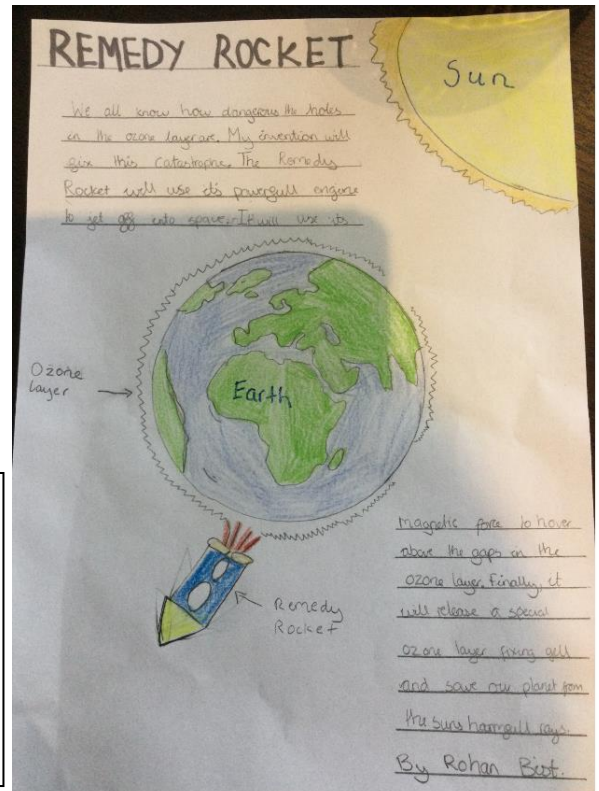 REMEDY ROCKET
Sun
We all know how dangerous the holes
in the ozone layer are. My invention will
fix this catastrophe. The Remedy
Rocket will use it's powerfull engine
to jet off into space. It will use its
Ozone
layer
Earth
Remedy
Rocket
magnetic force to hover
above the gaps in the
ozone layer. Finally, it
will release a special
ozone layer fixing gell
and save our planet from
the suns harmfull rays.
By Rohan